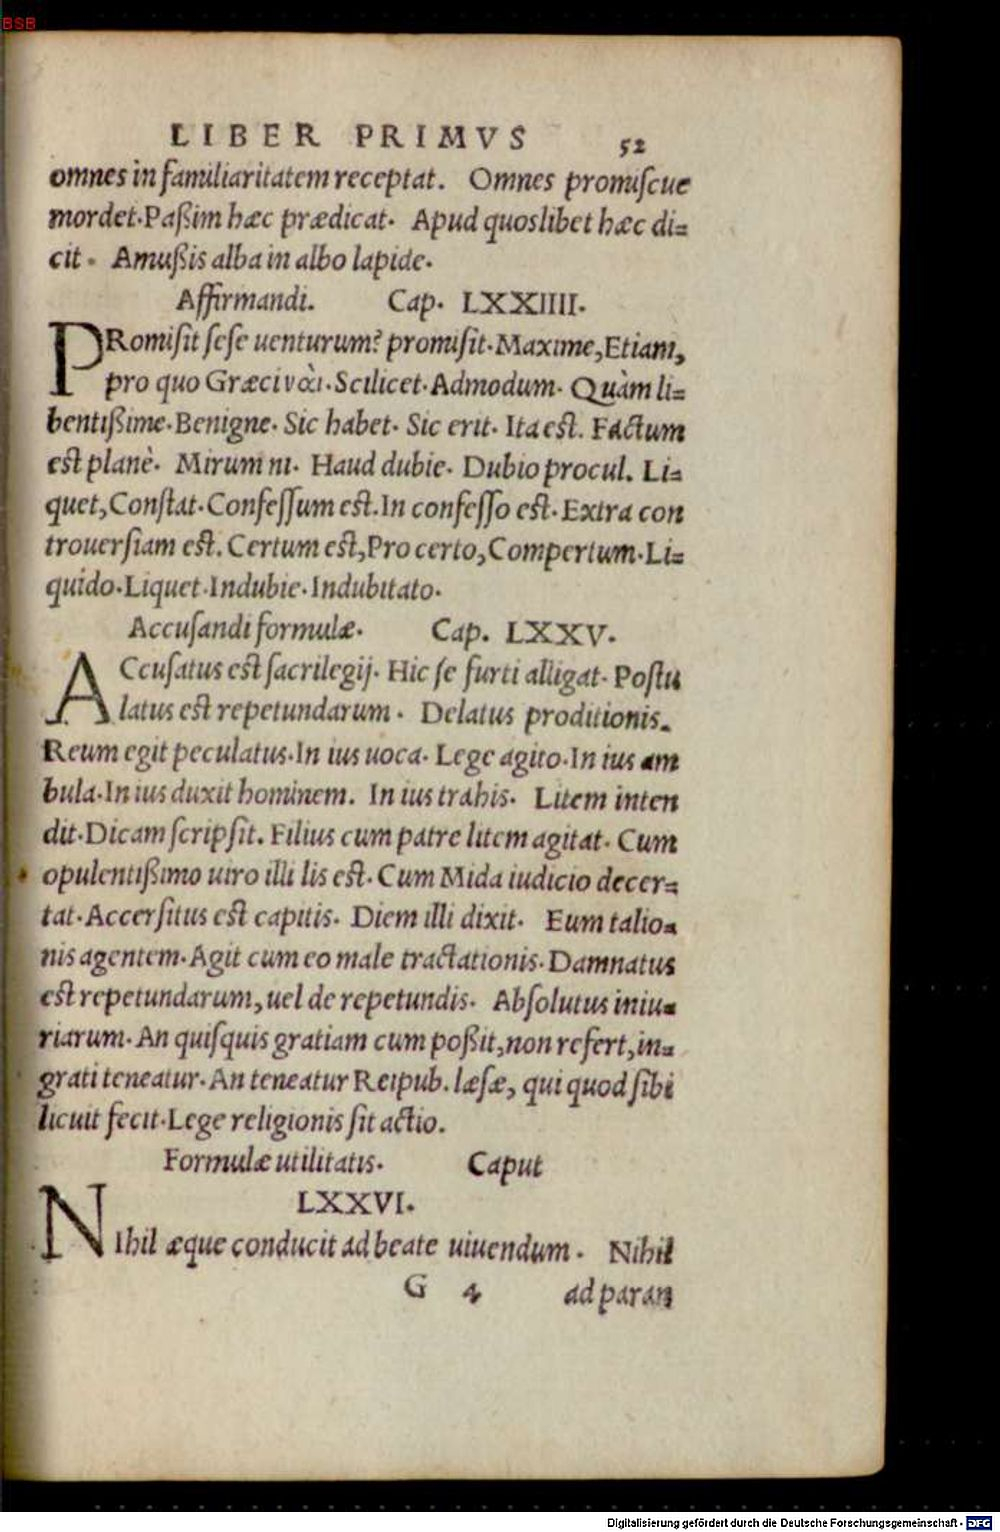 BSB
LIBER PRIMVS 52
omnes in familiaritatem receptat. Omnes promiſcue
mordet. Paßim hæc prædicat. Apud quoslibet hæc di=
cit. Amußis alba in albo lapide.
Affirmandi. Cap. LXXIIII.
PRomiſit ſeſe uenturum? promiſit. Maxime, Etiam,
pro quo Græci ναὶ. Scilicet. Admodum. Quàm li=
bentißime. Benigne. Sic habet. Sic erit. Ita eſt. Factum
eſt planè. Mirum ni. Haud dubie. Dubio procul. Li=
quet, Conſtat. Confeſſum eſt. In confeſſo eſt. Extra con
trouerſiam eſt. Certum eſt, Pro certo, Compertum. Li=
quido. Liquet. Indubie. Indubitato.
Accuſandi formulæ. Cap. LXXV.
ACcuſatus eſt ſacrilegij. Hic ſe furti alligat. Poſtu
latus eſt repetundarum. Delatus proditionis.
Reum egit peculatus. In ius uoca. Lege agito. In ius am
bula. In ius duxit hominem. In ius trahis. Litem inten
dit. Dicam ſcripſit. Filius cum patre litem agitat. Cum
opulentißimo uiro illi lis eſt. Cum Mida iudicio decer=
tat. Accerſitus eſt capitis. Diem illi dixit. Eum talio=
nis agentem. Agit cum eo male tractationis. Damnatus
eſt repetundarum, uel de repetundis. Abſolutus iniu=
riarum. An quiſquis gratiam cum poßit, non refert, in=
grati teneatur. An teneatur Reipub. læſæ, qui quod ſibi
licuit fecit. Lege religionis ſit actio.
Formulæ utilitatis. Caput
LXXVI.
NIhil æque conducit ad beate uiuendum. Nihil
G 4 ad paran
Digitalisierung gefördert durch die Deutsche Forschungsgemeinschaft - DFG